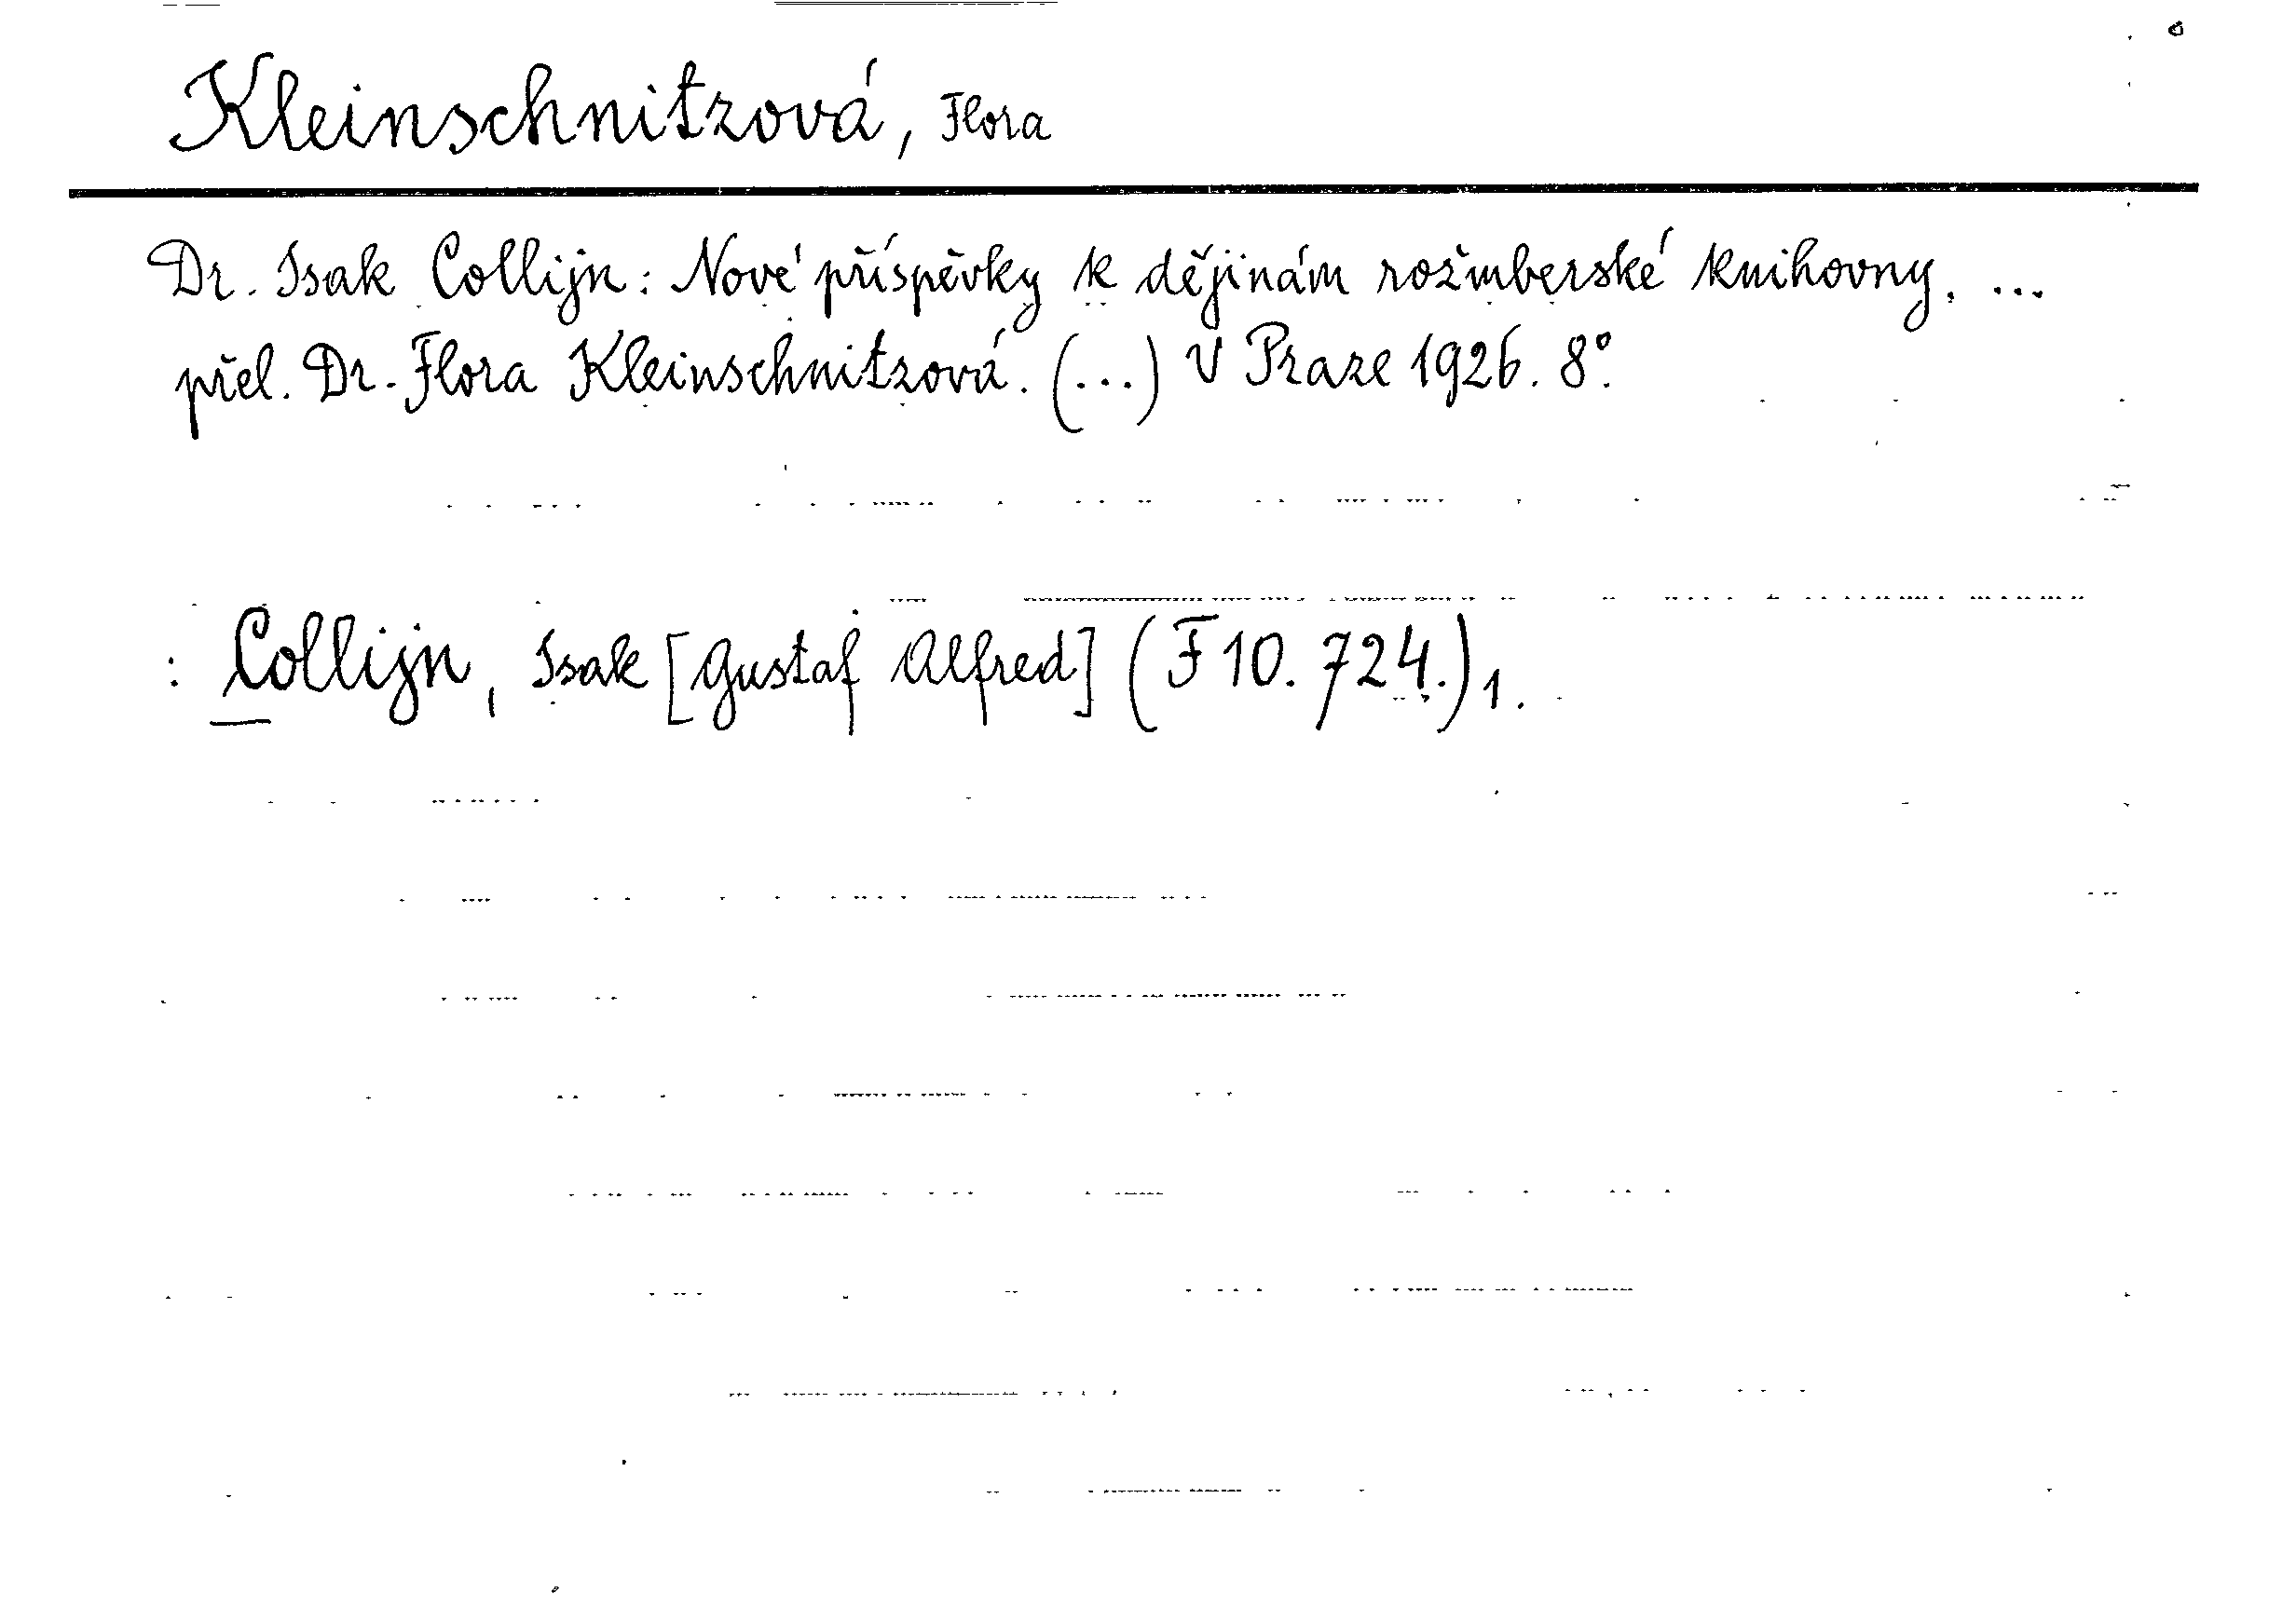 Kleinschnitzová, Flora
Dr. Isak Collijn: Nové příspěvky k dějinám rožmberské knihovny. ...
přel. Dr. Flora Kleinschnitzová. (...) V Praze 1926. 8°.
: Collijn, Isak [Gustaf Alfred] (F 10.724.) 1.